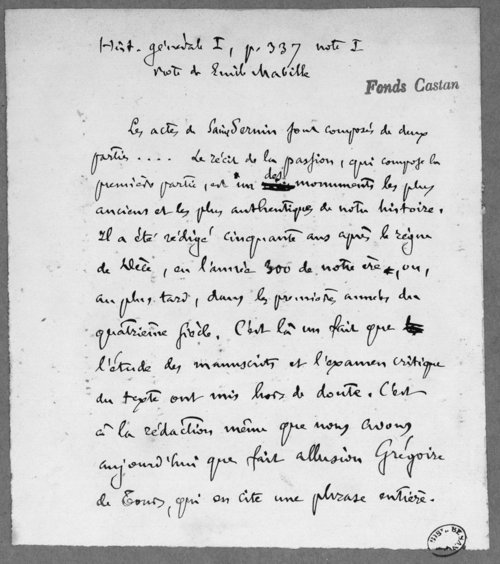 Hist. générale I, p. 337 note I
Note de Emile Mabille
Fonds Castan
Les actes de Saint Sernin sont composés de deux
parties .... Le récit de la passion, qui compose la
première partie, est un des monuments les plus
anciens et les plus authentiques de notre histoire.
Il a été rédigé cinquante ans après le règne
de Dèce, en l'année 300 de notre ère, ou,
au plus tard, dans les premières années du
quatrième siècle. C'est là un fait que
l'étude des manuscrits et l'examen critique
du texte ont mis hors de doute. C'est
à la rédaction même que nous avons
aujourd'hui que fait allusion Grégoire
de Tours, qui en cite une phrase entière.